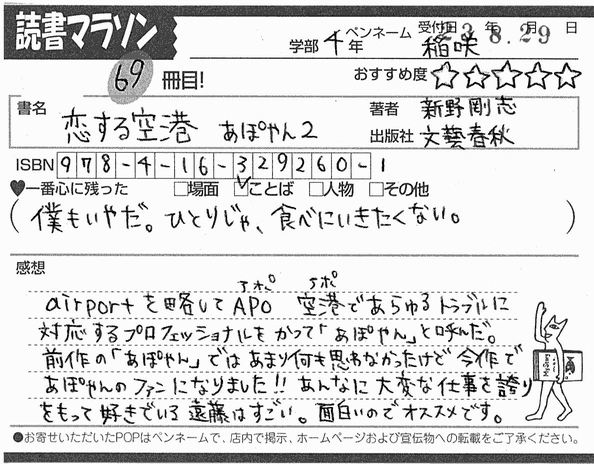 読書マラソン
学部 4年 ペンネーム 稲咲 受付日 23年 8.月 29日
69 冊目! おすすめ度 ☆☆☆☆☆
書名 恋する空港 あぽやん2
著者 新野剛志
出版社 文藝春秋
ISBN 978-4-16-329260-1
♥一番心に残った □場面 ☑ことば □人物 □その他
(僕もいやだ。ひとりじゃ、食べにいきたくない。)
感想
アポ アポ
airportを略してAPO 空港であらゆるトラブルに
対応するプロフェッショナルをかつて「あぽやん」と呼んだ。
前作の「あぽやん」ではあまり何も思わなかったけど今作で
あぽやんのファンになりました!!あんなに大変な仕事を誇り
をもって好きでいる遠藤はすごい。面白いのでオススメです。
●お寄せいただいたPOPはペンネームで、店内で掲示、ホームページおよび宣伝物への転載をご了承ください。